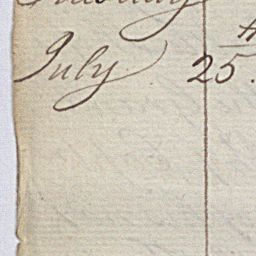 July 25.